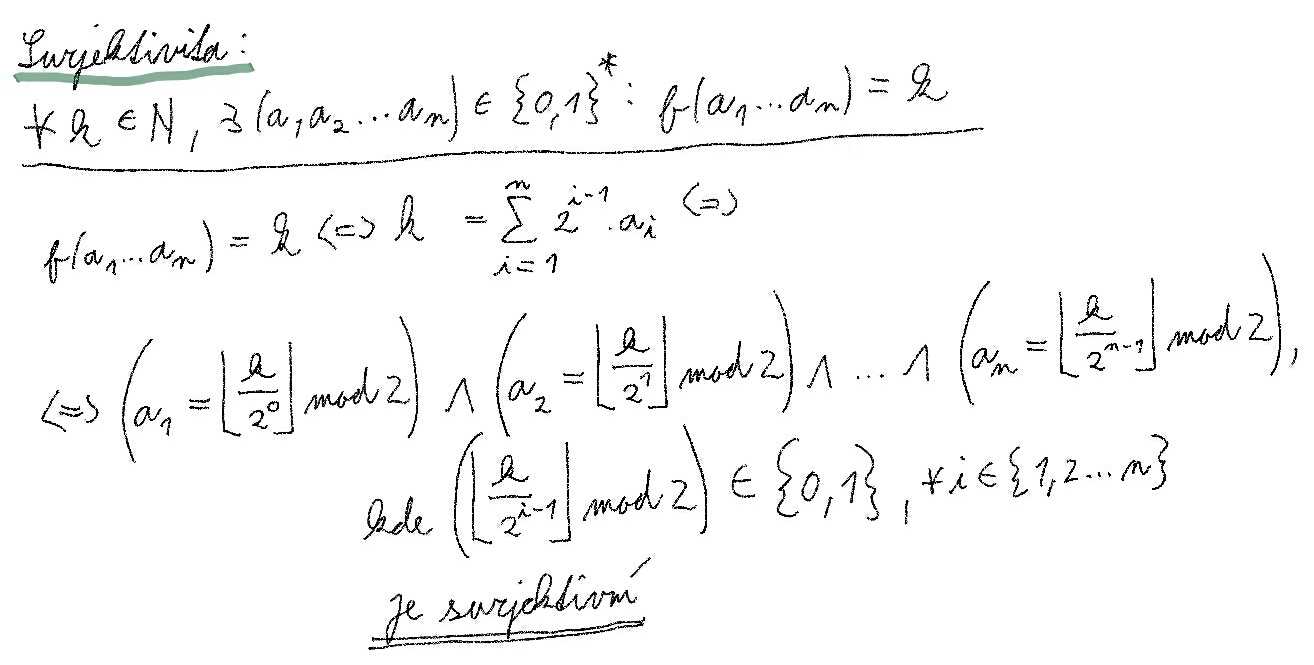 Surjektivita:
∀k ∈ N, ∃(a₁a₂...aₙ) ∈ {0,1}*: f(a₁...aₙ) = k
f(a₁...aₙ) = k <=> k = ∑ᵢ₌₁ⁿ 2ⁱ⁻¹·aᵢ <=>
<=> (a₁ = ⌊k/2⁰⌋ mod 2) ∧ (a₂ = ⌊k/2¹⌋ mod 2) ∧ ... ∧ (aₙ = ⌊k/2ⁿ⁻¹⌋ mod 2),
kde (⌊k/2ⁱ⁻¹⌋ mod 2) ∈ {0,1}, ∀i ∈ {1,2...n}
Je surjektivní